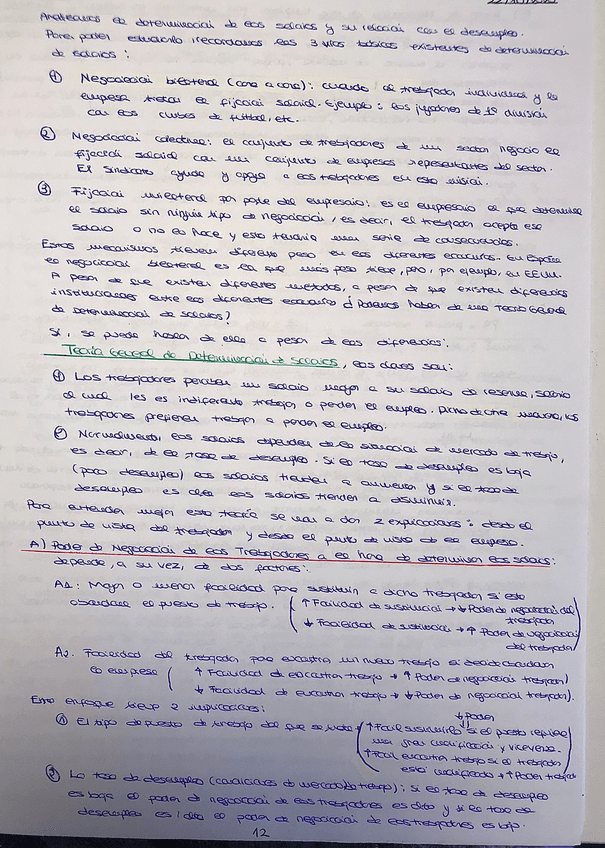 Analizamos la determinación de los salarios y su relación con el desempleo.
Para poder estudiarlo recordamos las 3 vías básicas existentes de determinación
de salarios:
① Negociación bilateral (cara a cara): cuando el trabajador individual y la
empresa tratan la fijación salarial. Ejemplo: los jugadores de 1ª división
con los clubes de fútbol, etc.
② Negociación colectiva: el conjunto de trabajadores de un sector negocia la
fijación salarial con un conjunto de empresas representantes del sector.
El sindicato ayuda y apoya a los trabajadores en esta misión.
③ Fijación unilateral por parte del empresario: es el empresario el que determina
el salario sin ningún tipo de negociación, es decir, el trabajador acepta ese
salario o no lo hace y esto tendría una serie de consecuencias.
Estos mecanismos tienen diferente peso en las diferentes economías. En España
la negociación bilateral es la que más peso tiene, pero, por ejemplo, en EEUU.
A pesar de que existen diferentes métodos, a pesar de que existen diferencias
institucionales entre las diferentes economías ¿Podemos hablar de una Teoría General
de Determinación de salarios?
Sí, se puede hablar de ella a pesar de las diferencias.
Teoría General de Determinación de salarios, las claves son:
① Los trabajadores perciben un salario mayor a su salario de reserva, salario
al cual les es indiferente trabajar o perder el empleo. Dicho de otra manera, los
trabajadores prefieren trabajar a perder el empleo.
② Normalmente, los salarios dependen de la situación de mercado de trabajo,
es decir, de la tasa de desempleo. Si la tasa de desempleo es baja
(poco desempleo) los salarios tienden a aumentar y si la tasa de
desempleo es alta los salarios tienden a disminuir.
Para entender mejor esta teoría se van a dar 2 explicaciones: desde el
punto de vista del trabajador y desde el punto de vista de la empresa.
A) Poder de Negociación de los Trabajadores a la hora de determinar los salarios:
depende, a su vez, de dos factores:
A1: Mayor o menor facilidad para sustituir a dicho trabajador si este
abandona el puesto de trabajo. ( ↑ Facilidad de sustitución → ↓ Poder de negociación del
trabajador
↓ Facilidad de sustitución → ↑ Poder de negociación
del trabajador)
A2. Facilidad del trabajador para encontrar un nuevo trabajo si decide abandonar
la empresa ( ↑ Facilidad de encontrar trabajo → ↑ Poder de negociación trabajador)
↓ Facilidad de encontrar trabajo → ↓ Poder de negociación trabajador).
Este enfoque tiene 2 implicaciones:
① El tipo de puesto de trabajo del que se trate (↑ Fácil sustituirlo si el puesto requiere
↓ Poder
una gran cualificación y viceversa.
↑ Fácil encontrar trabajo si el trabajador
está cualificado → ↑ Poder trabajad
② La tasa de desempleo (condiciones de mercado de trabajo); si la tasa de desempleo
es baja el poder de negociación de los trabajadores es alto y si la tasa de
desempleo es alta el poder de negociación de los trabajadores es bajo.
12